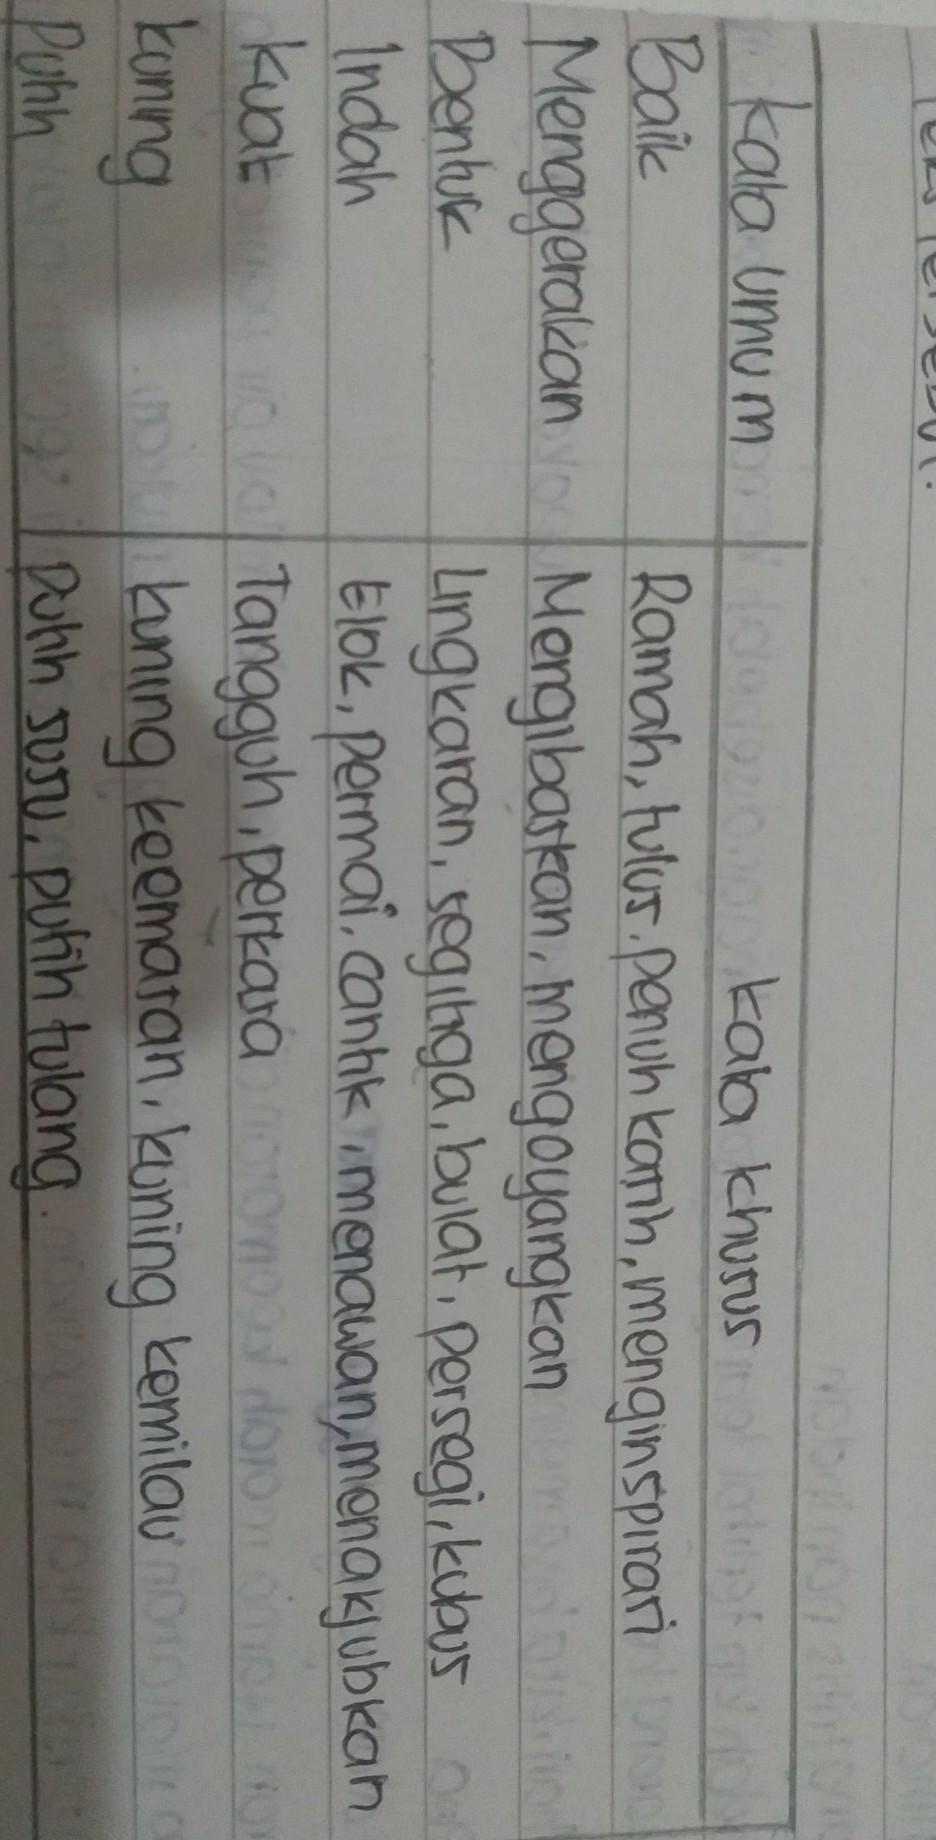 teks tersebut.
Kata Umum Kata khusus
Baik Ramah, tulus, penuh kasih, menginspirasi
Menggerakan Mengibaskan, mengoyangkan
Bentuk Lingkaran, segitiga, bulat, persegi, kubus
Indah Elok, permai, cantik, menawan, menakjubkan
Kuat Tangguh, perkasa
kuning kuning keemasan, kuning kemilau
Putih Putih susu, putih tulang.